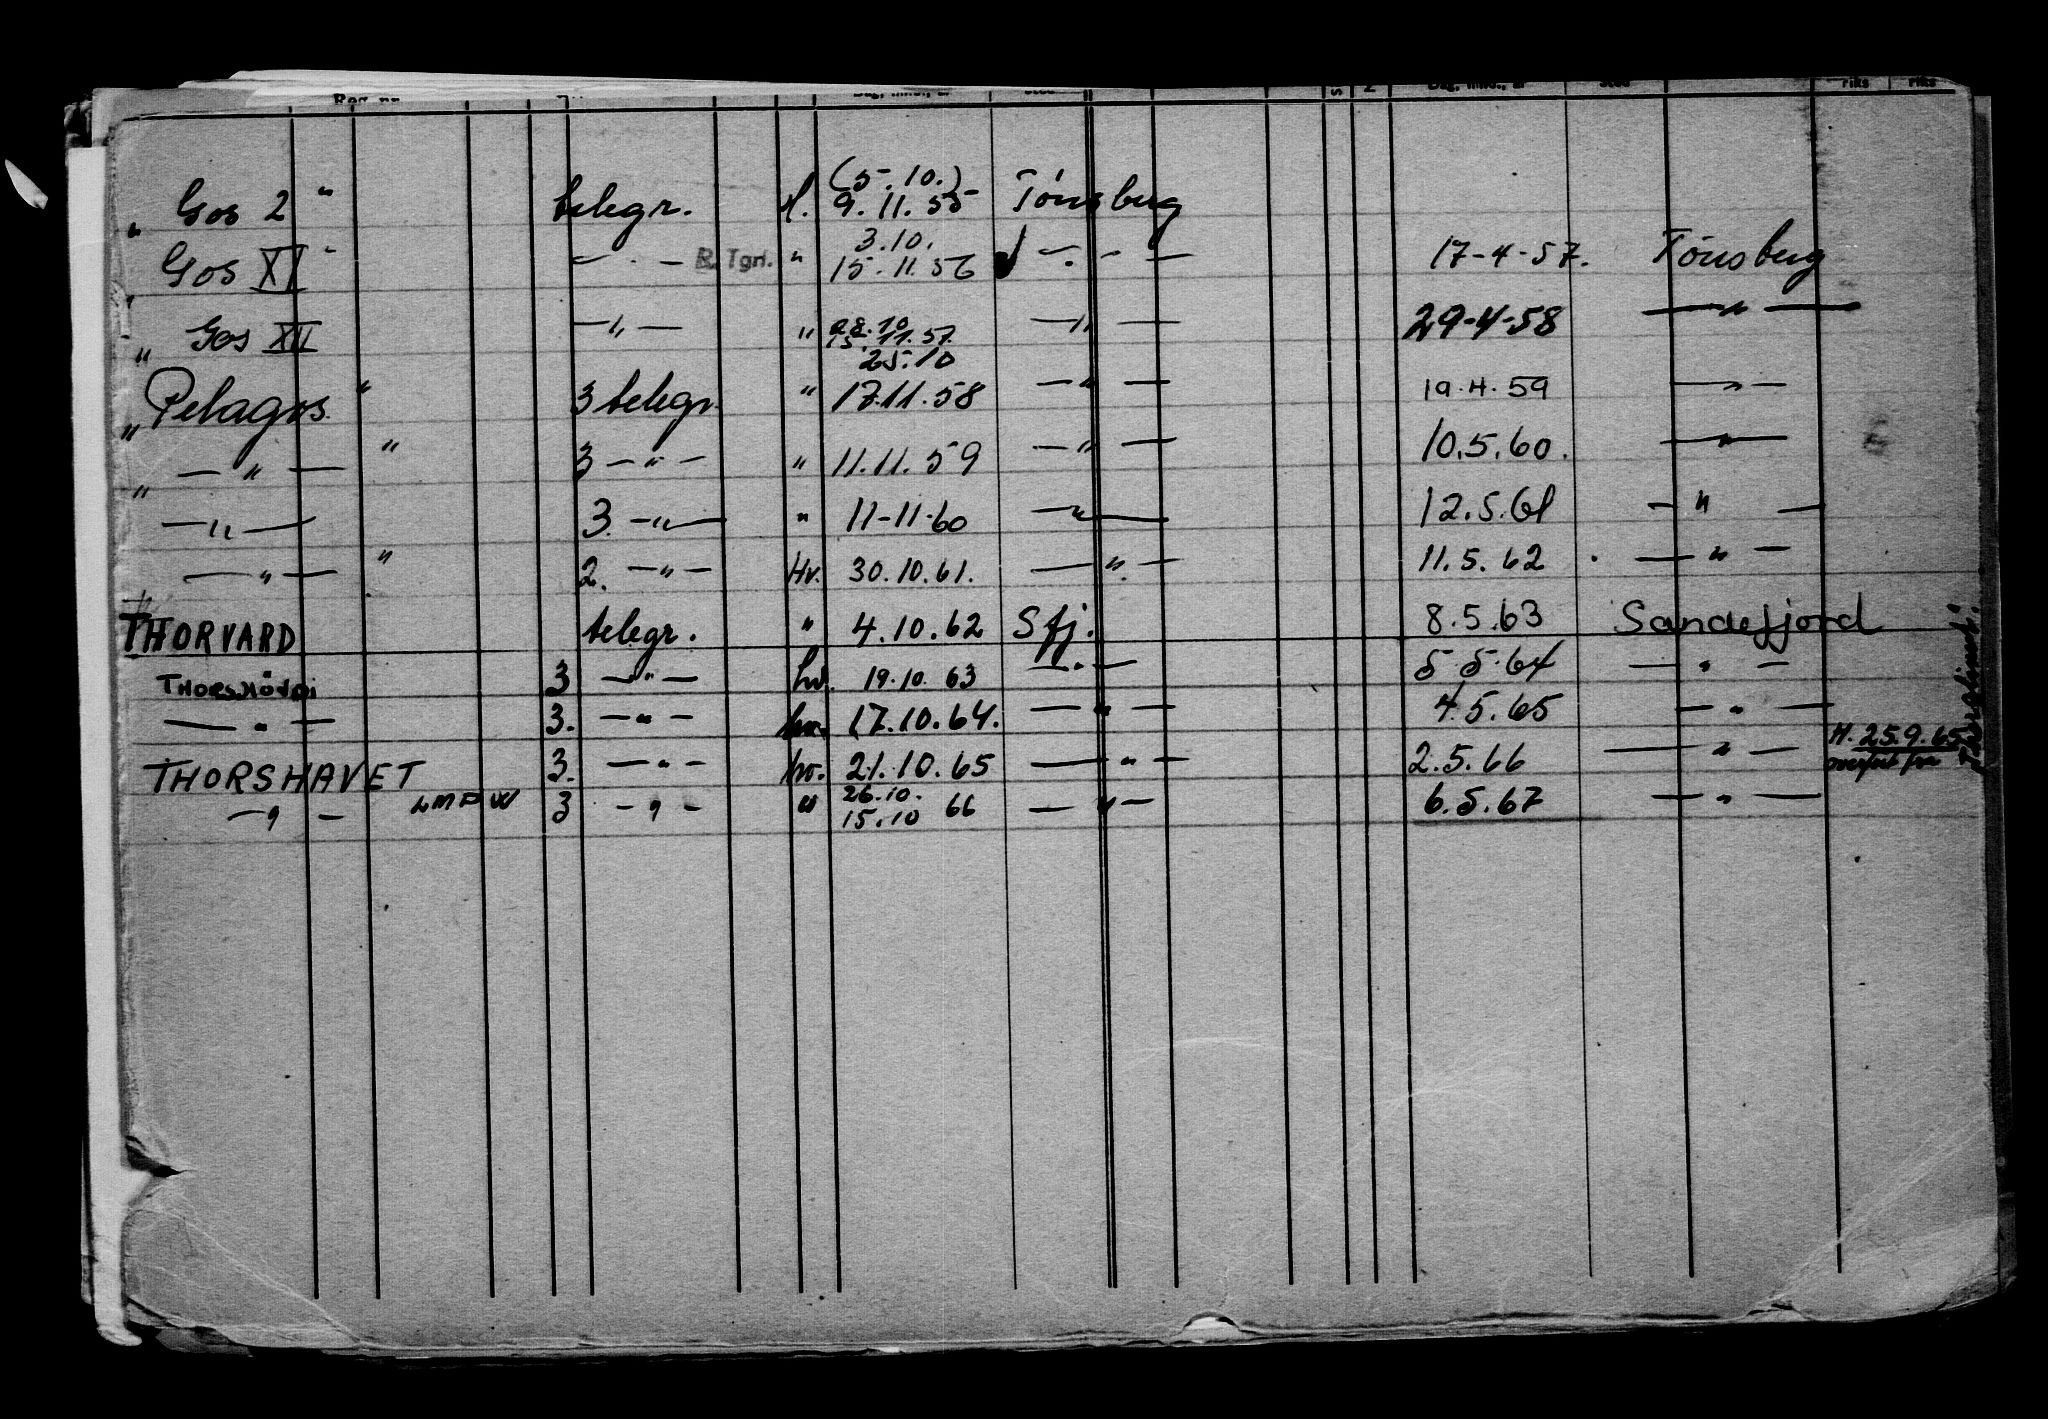 Reg. nr. Dag, mnd., år Sted S Z Dag, mnd., år Sted riks riks
(5.10.)
" Gos 2 " telegr. 9.11.55 Tönsberg
3.10.
" Gos XI " — " — R. Tgn. " 15.11.56 — " — 17-4-57. Tönsberg
28.10
" Gos XII — " — " 15.11.57. — " — 29-4-58 — " —
25.10
" Pelagos " 3 telegr. " 17.11.58 — " — 19.4.59 — " —
" — " — " 3 — " — " 11.11.59 — " — 10.5.60. — " —
— " — 3. — " — " 11-11-60 — " — 12.5.61 — " —
— " — " 2. — " — Hv. 30.10.61. — " — 11.5.62 — " —
THORVARD telegr. " 4.10.62 Sfj. 8.5.63 Sandefjord
THORSHÖVDI 3 — " — hv. 19.10.63 — " — 5.5.64 — " —
— " — 3. — " — hv. 17.10.64. — " — 4.5.65 — " —
THORSHAVET 3. — " — hv. 21.10.65 — " — 2.5.66 — " — H. 25.9.65 overført fra
26.10.
— " — LMPW 3 — " — " 15.10 66 — " — 6.5.67 — " —